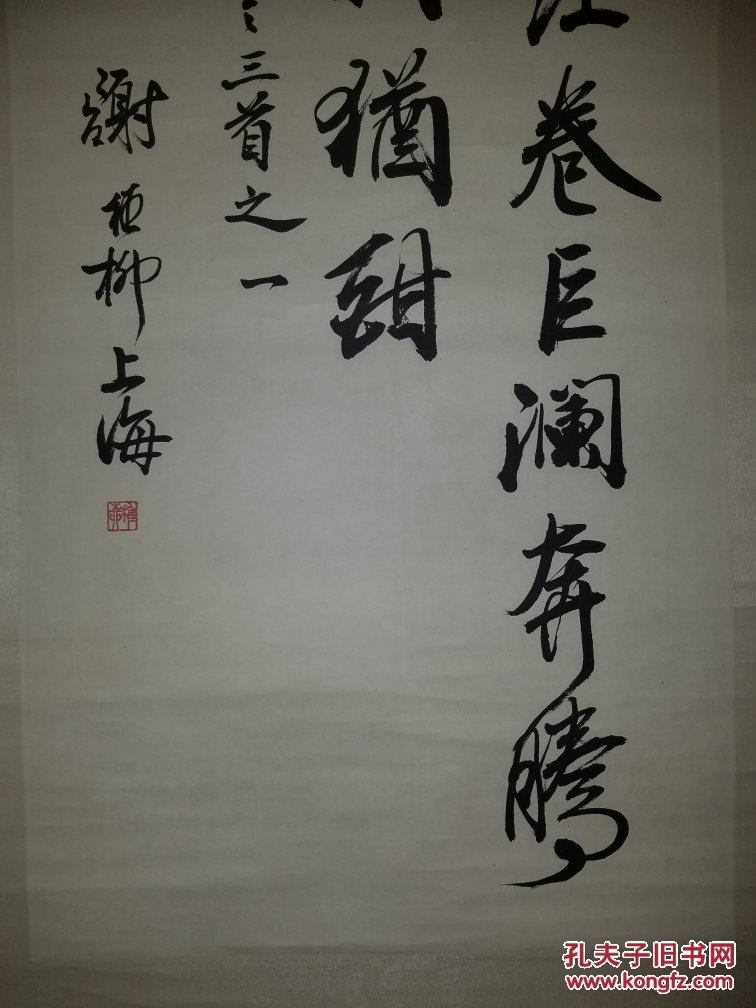 江卷巨澜奔腾
猶酣
三首之一
謝稚柳上海
孔夫子旧书网
www.kongfz.com